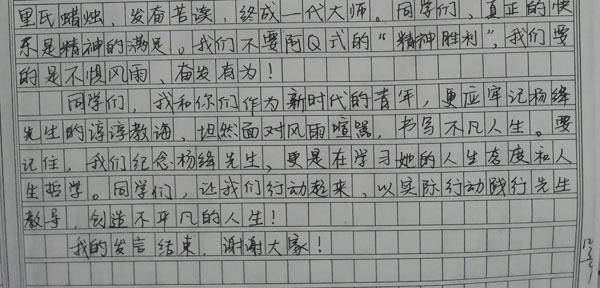 里氏蜡烛，发奋苦读，终成一代大师。同学们，真正的快
乐是精神的满足。我们不要阿Q式的“精神胜利”，我们要
的是不惧风雨、奋发有为！
同学们，我和你们作为新时代的青年，更应牢记杨绛
先生的谆谆教诲，坦然面对风雨喧嚣，书写不凡人生。要
记住，我们纪念杨绛先生，更是在学习她的人生态度和人
生哲学。同学们，让我们行动起来，以实际行动践行先生
教导，创造不平凡的人生！
我的发言结束，谢谢大家！